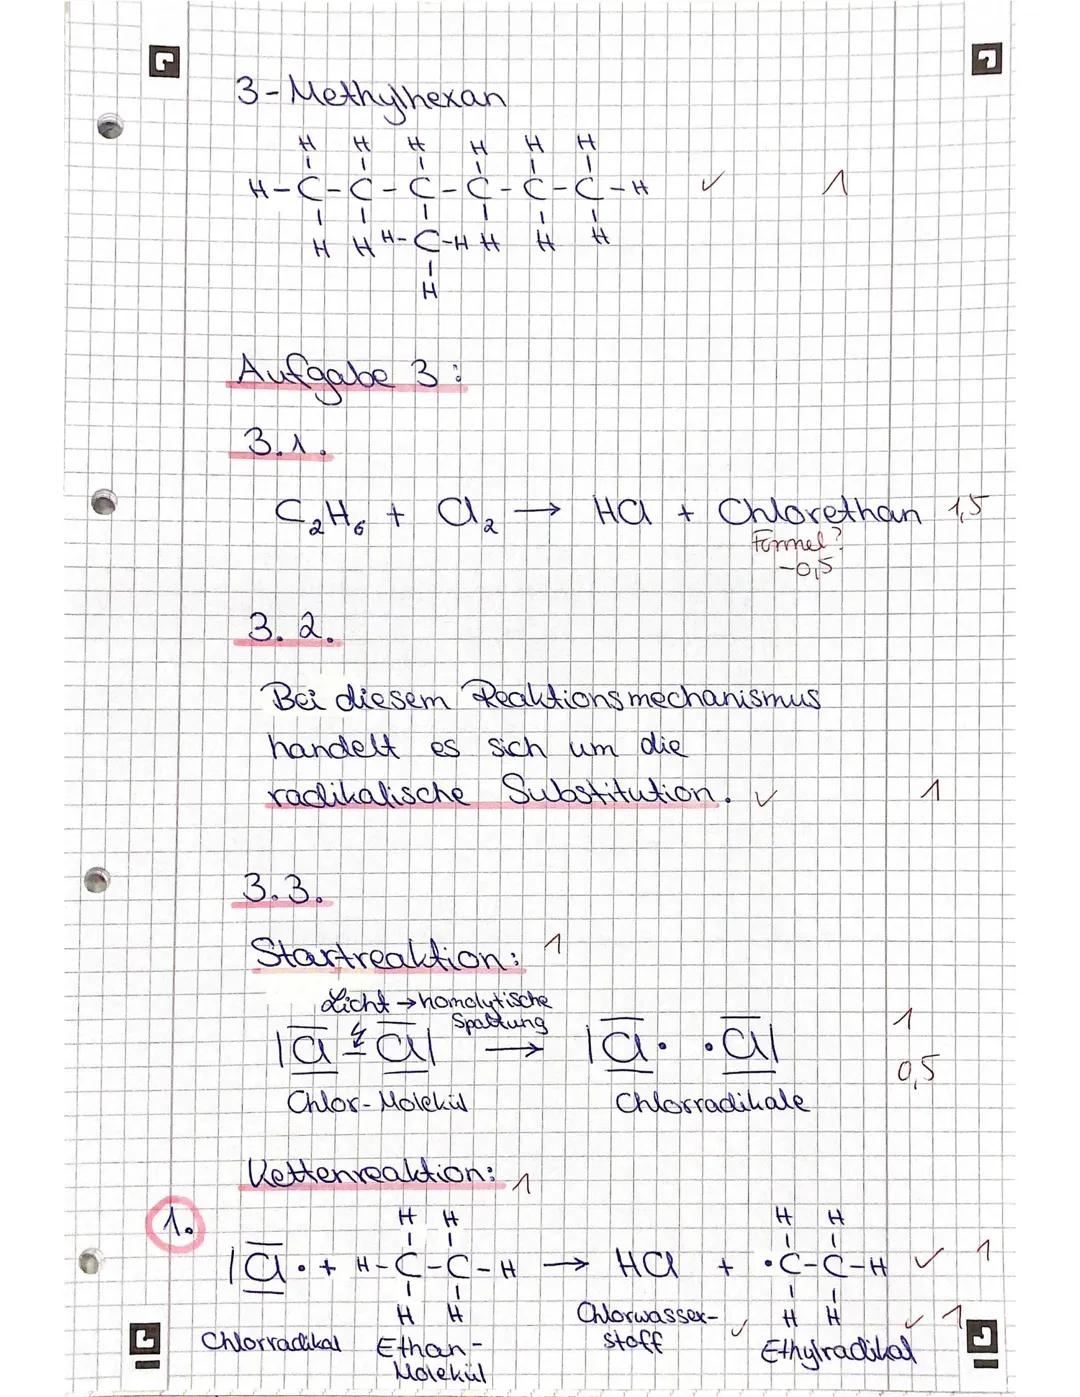 3-Methylhexan
H H H H H H
H-C-C-C-C-C-C-H ✓ 1
H H H-C-H H H H
H
Aufgabe 3:
3.1.
C₂H₆ + Cl₂ → HCl + Chlorethan 1,5
Formel?
-0,5
3.2.
Bei diesem Reaktionsmechanismus
handelt es sich um die
radikalische Substitution. ✓ 1
3.3.
Startreaktion: 1
Licht → homolytische
Spaltung
|Cl - Cl| → |Cl· ·Cl| 1
0,5
Chlor-Molekül Chlorradikale
Kettenreaktion: 1
1.
H H H H
|Cl· + H-C-C-H → HCl + ·C-C-H ✓ 1
H H Chlorwasser- ✓ H H ✓ 1
Chlorradikal Ethan- stoff Ethylradikal
Molekül